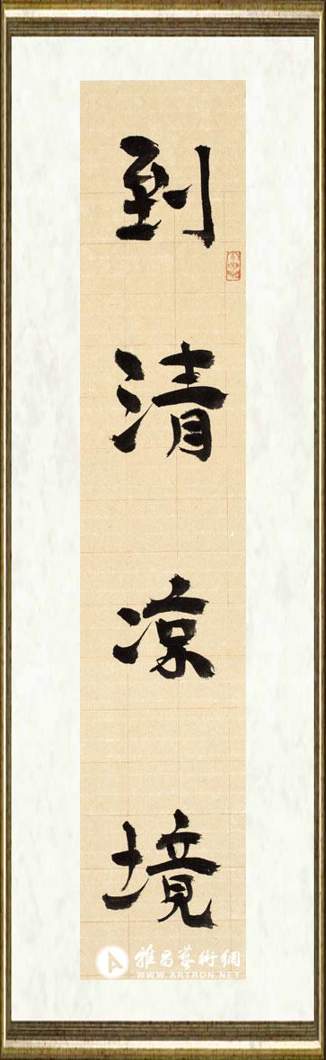 到清凉境
雅昌藝術網
WWW.ARTRON.NET